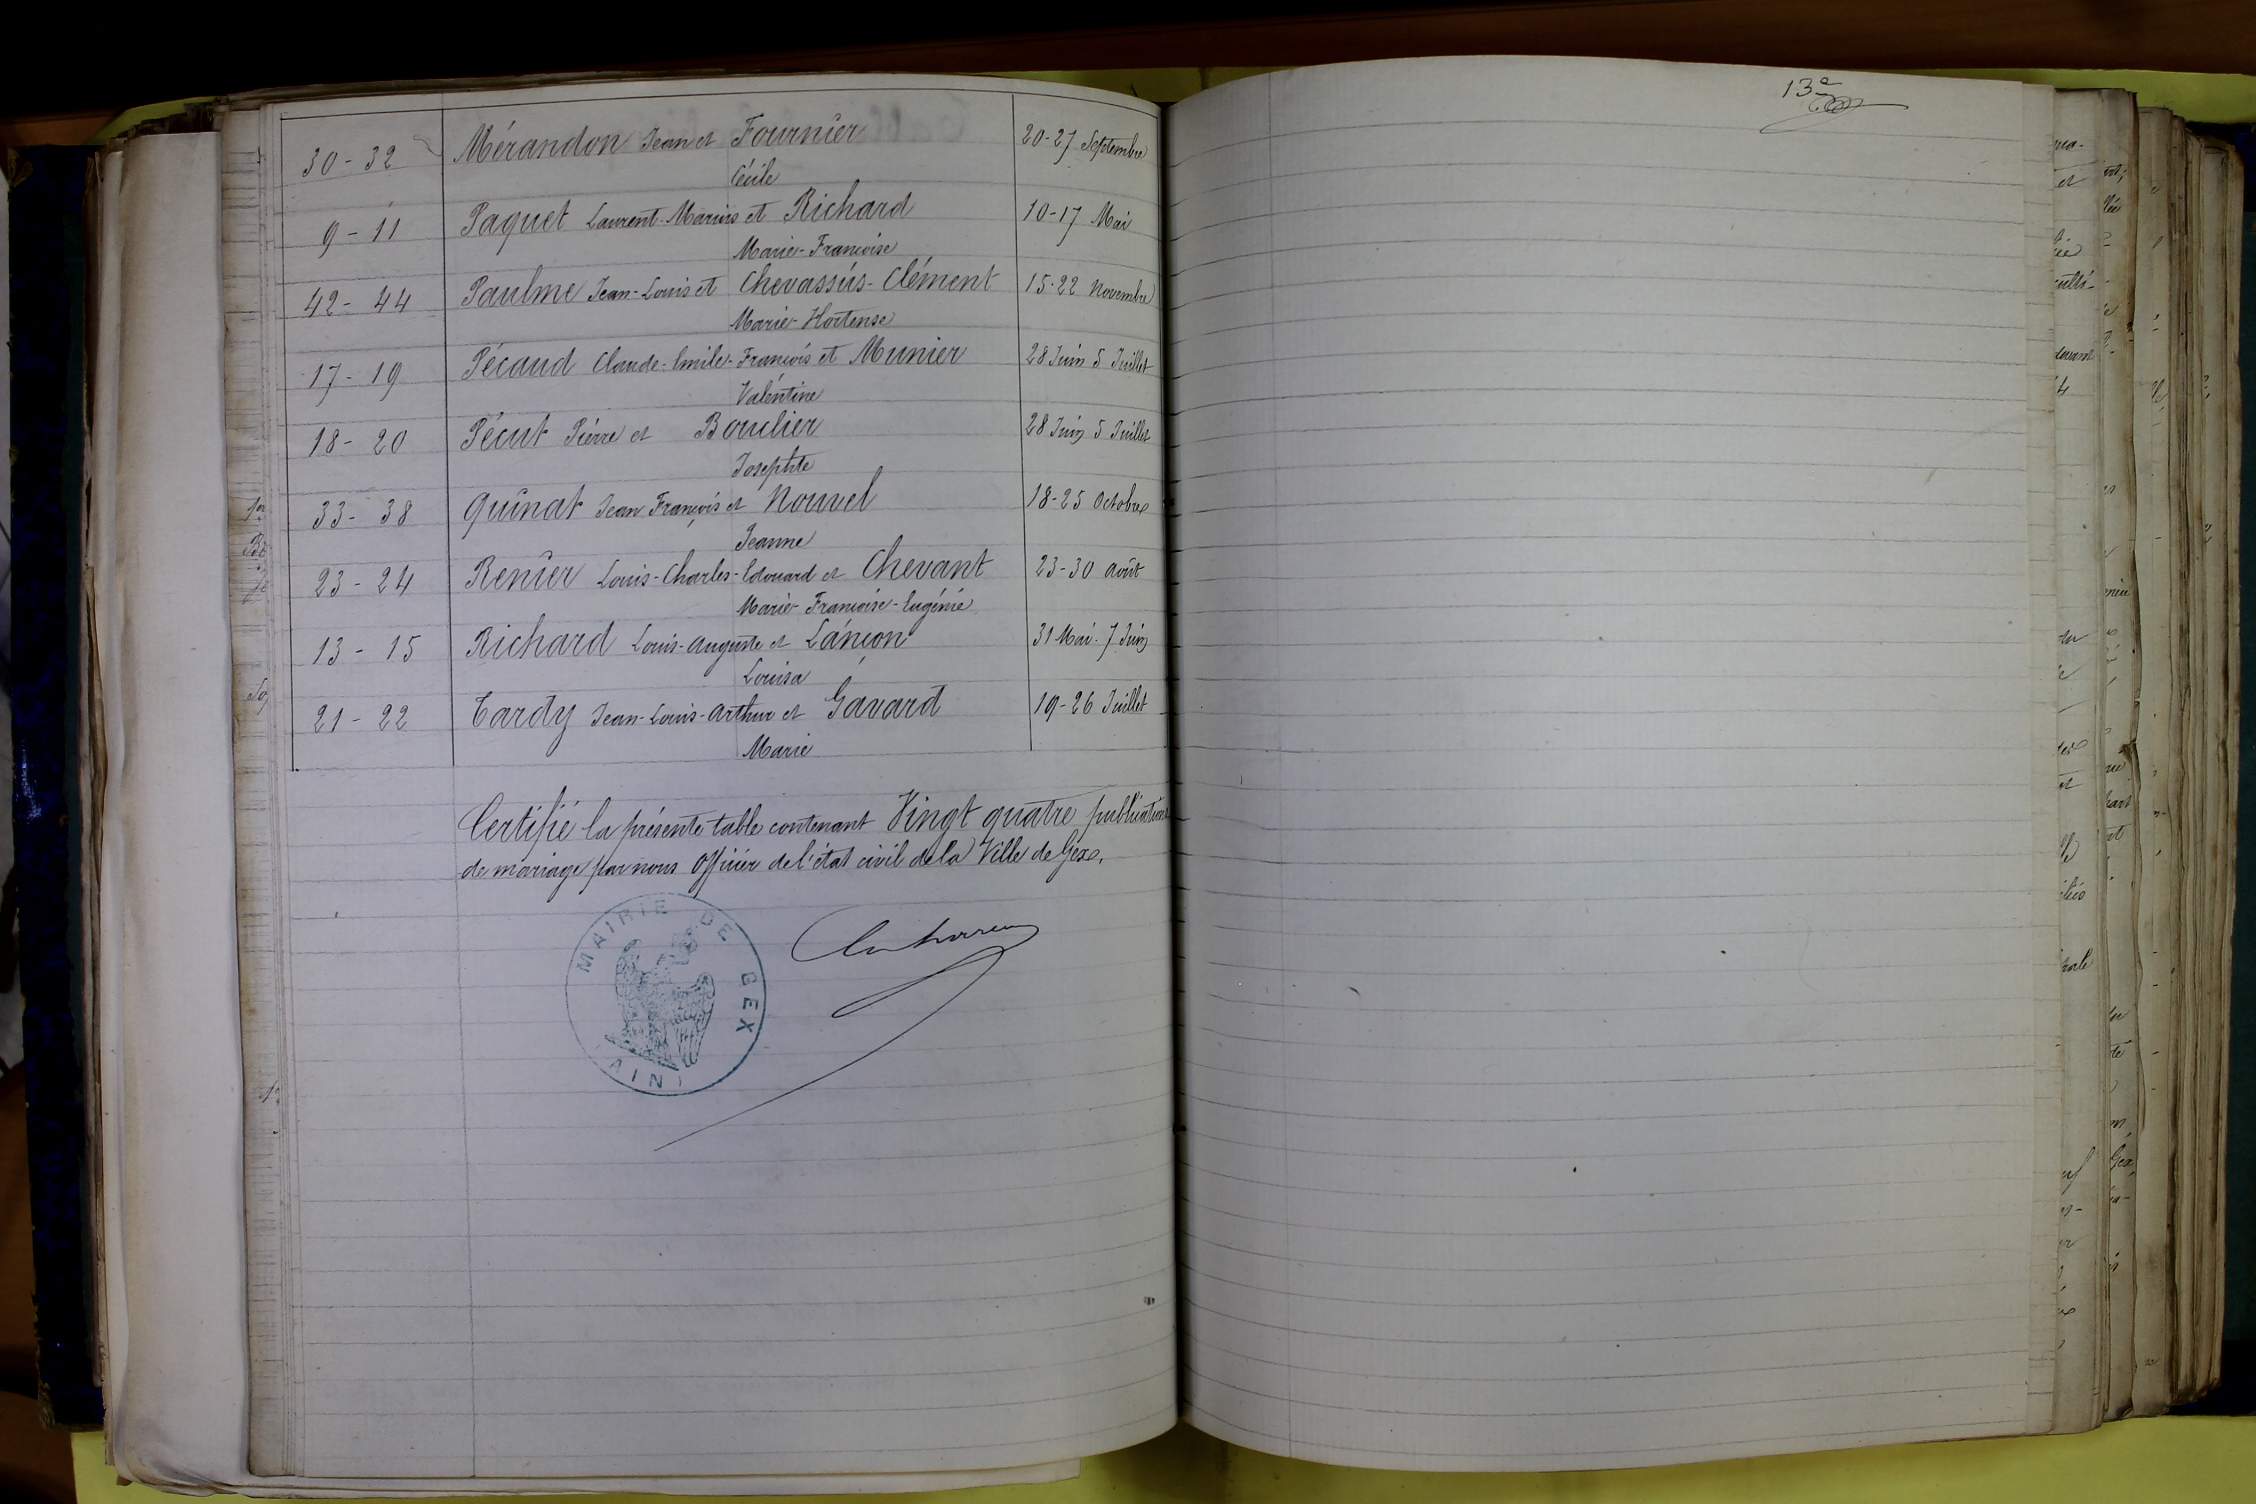 13e
30 - 32 Mérandon Jean et Fournier 20-27 Septembre
Cécile
9 - 11 Paquet Laurent-Marius et Richard 10-17 Mai
Marie-Françoise
42 - 44 Paulme Jean-Louis et Chevassus-Clément 15-22 Novembre
Marie-Hortense
17 - 19 Pécaud Claude-Emile-François et Munier 28 Juin 5 Juillet
Valentine
18 - 20 Pécut Pierre et Bouclier 28 Juin 5 Juillet
Josephte
33 - 38 Quinat Jean François et Nouvel 18-25 Octobre
Jeanne
23 - 24 Renier Louis-Charles-Edouard et Chevant 23-30 août
Marie-Françoise-Eugénie
13 - 15 Richard Louis-Auguste et Lançon 31 Mai-7 Juin
Louisa
21 - 22 Tardy Jean-Louis-Arthur et Gavard 19-26 Juillet
Marie
Certifié la présente table contenant Vingt quatre publications
de mariage par nous Officier de l'état civil de la Ville de Gex.
MAIRIE DE GEX
AIN